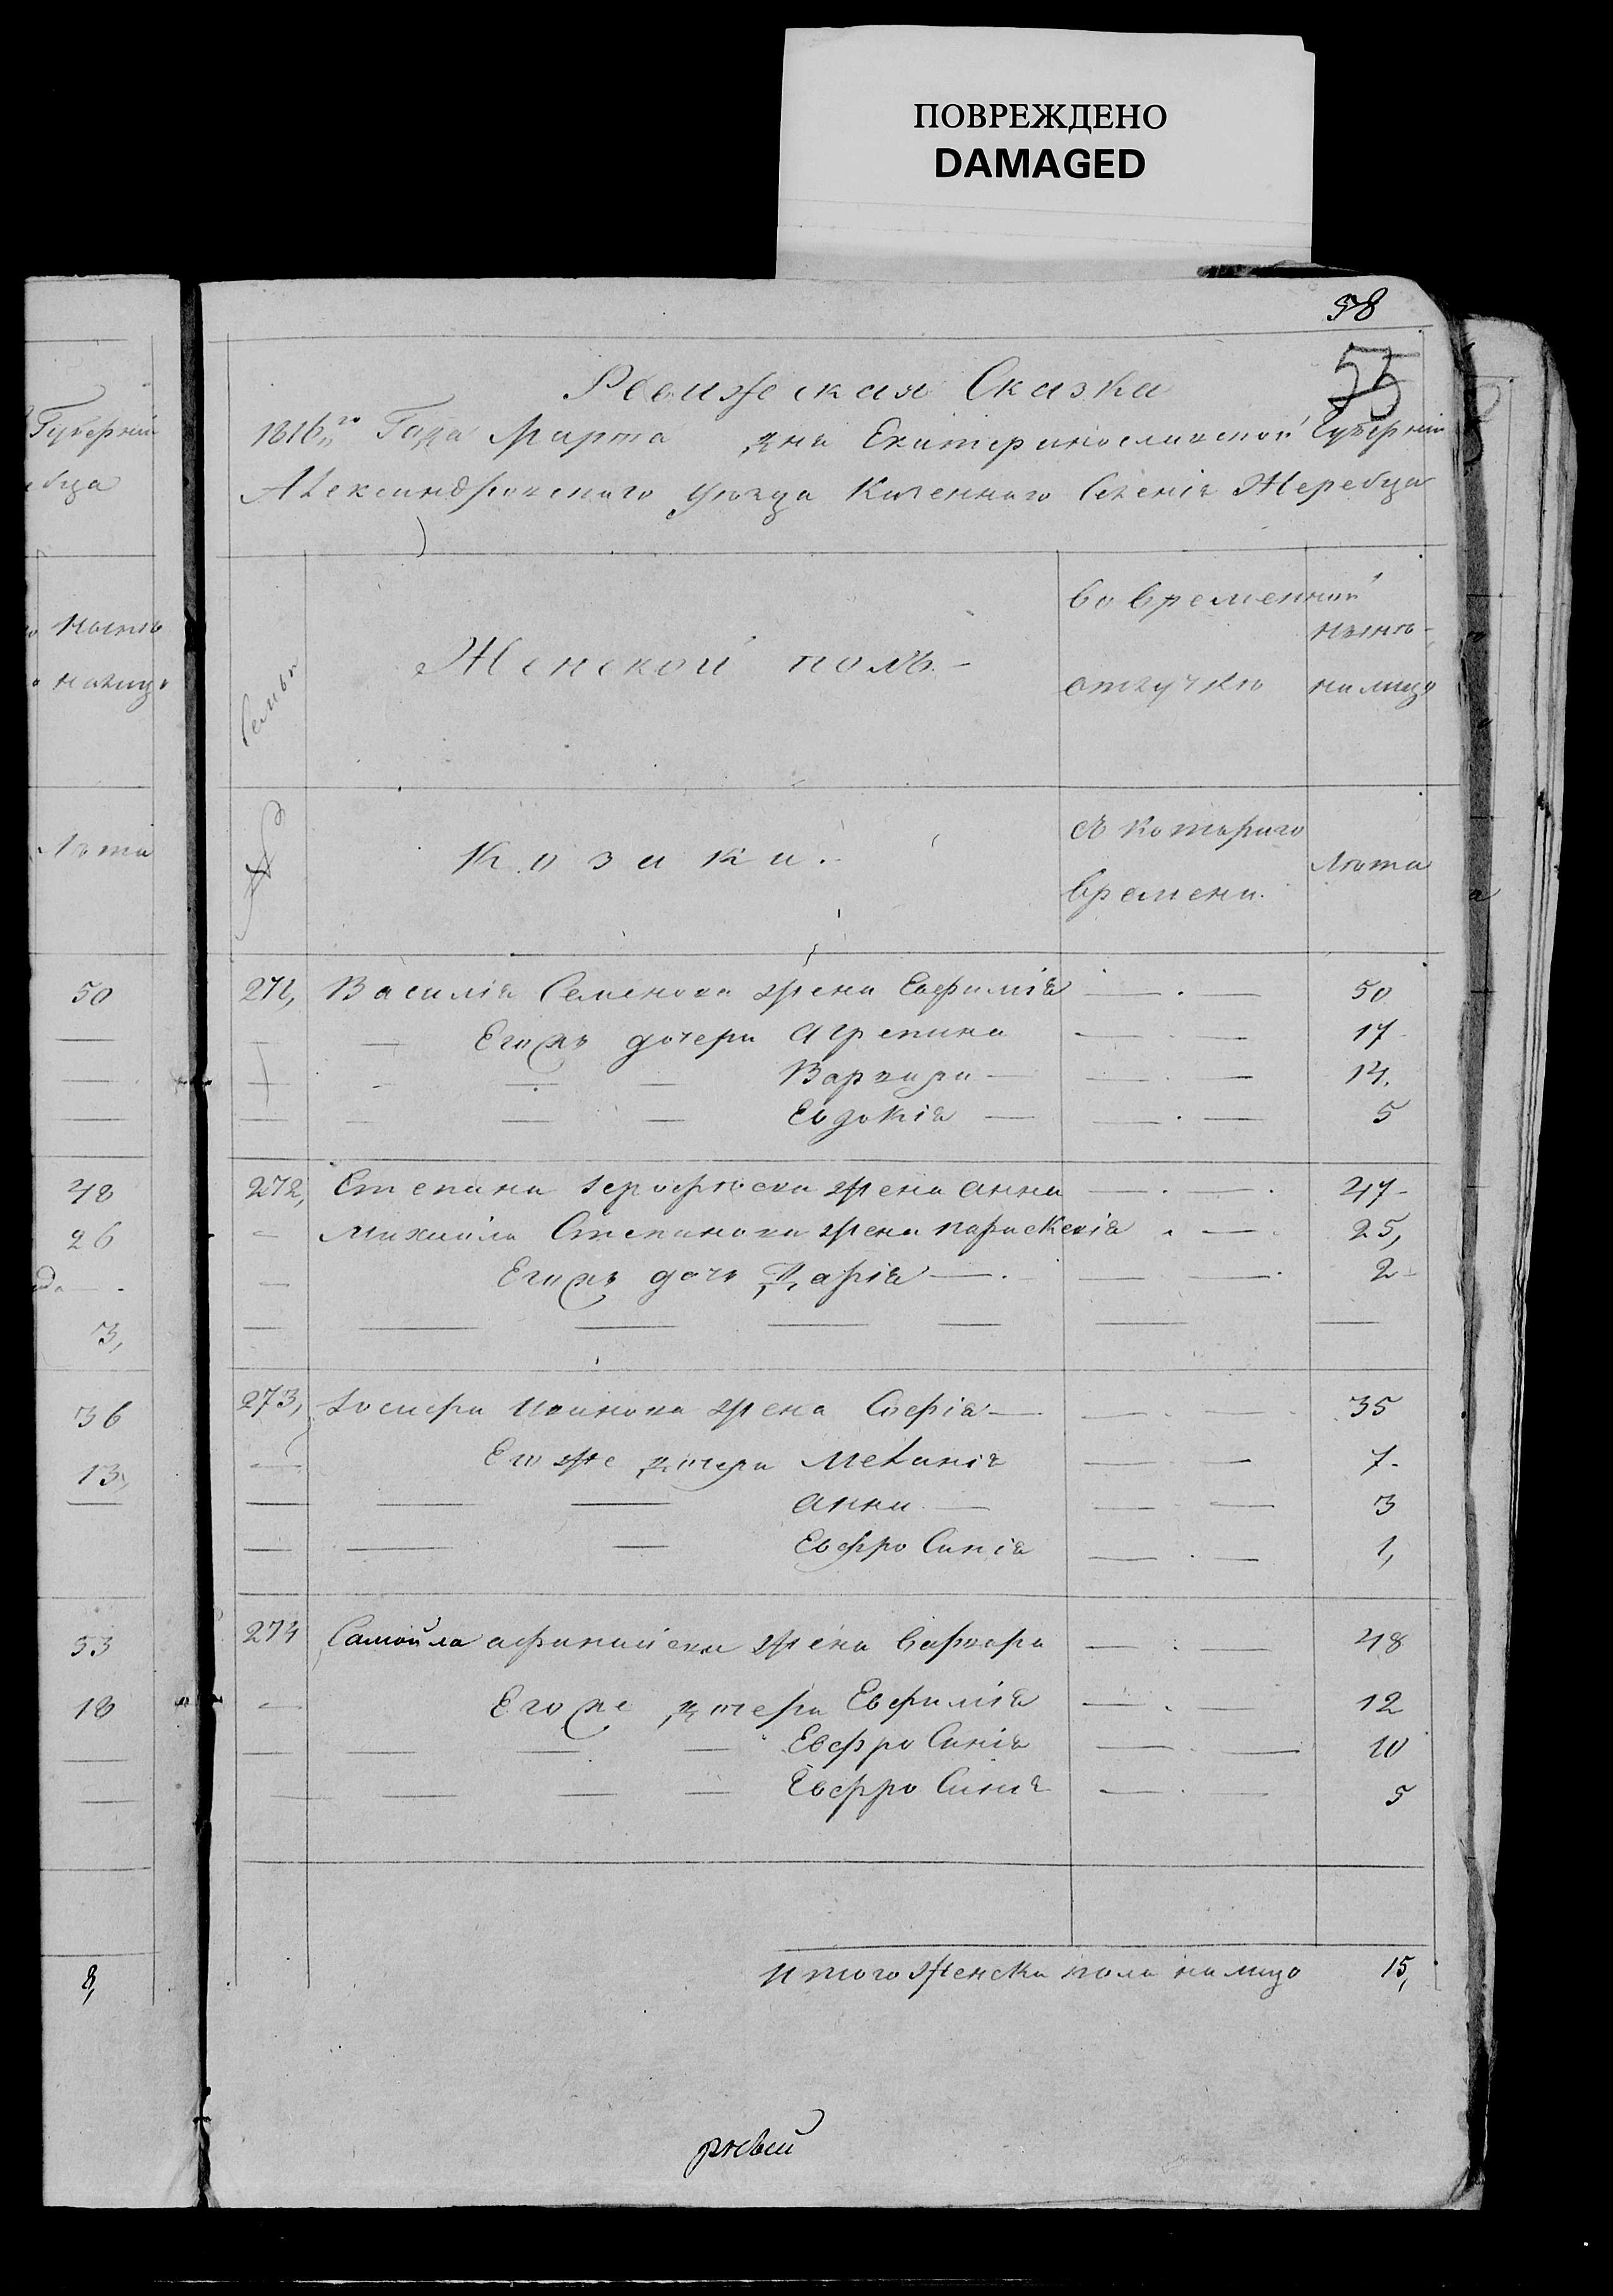 ПОВРЕЖДЕНО
DAMAGED
58
55
Ревижская Сказка
1816,,го Года Марта дня Екатеринославской Губерніи
Александровского уѣзда Казенного Селенія Жеребца
Губерніи
бца
Семьи
Женской полъ.-
во временной
отлучкѣ
нынѣ-
на лицо
нынѣ
налицо
№
Козаки.
съ которого
времени.
Лѣта
Лѣта
50
271, Василія Семенова жена Евфимія — . — 50
— — Егожъ дочери Агрепина — . — 17
Варвара — — . — 14.
Евдокія — — . — 5
48
272, Степана Ерофѣева жена Анна — . — . 47-
26
- Михайла Степанова жена Параскевія . — . 25,
— Егожъ дочь Дарія — . — — . 2-
3,
36
273, Іосифа Иванова жена Софія — — . — 35
13,
— Егоже дочери Меланія — . — 7.
Анна — — . — 3
Евфросинія — . — 1,
53
274 Самойла Афанасиева жена Варвара — . — 48
18
— Егоже дочери Евфимія — . — 12
Евфросинія — . — 10
Евфросинія — . — 5
8,
Итого женска пола на лицо 15,